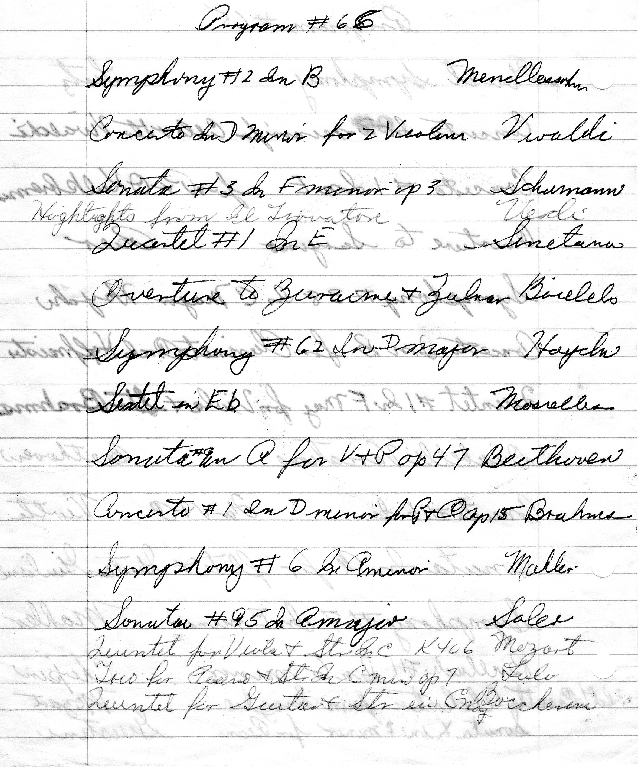 Program # 66
Symphony #2 In B Mendlessohn
Concerto In D Minor for 2 Violins Vivaldi
Sonata #3 In F minor op 3 Schumann
Hightights from Il Trovatore Verdi
Quartet #1 In E Smetana
Overture to Zuraime & Zulnar Boieldo
Symphony #62 In D major Haydn
Sextet in Eb Moscelles
Sonata #9 in A for V+P op 47 Beethoven
Concerto #1 In D minor for P+O op 15 Brahms
Symphony # 6 In A minor Mahler
Sonata #95 In A major Soler
Quintet for Viola & Str In C K406 Mozart
Trio for Piano & Str In C min op 7
Quintet for Guitar & Str in Boccherini